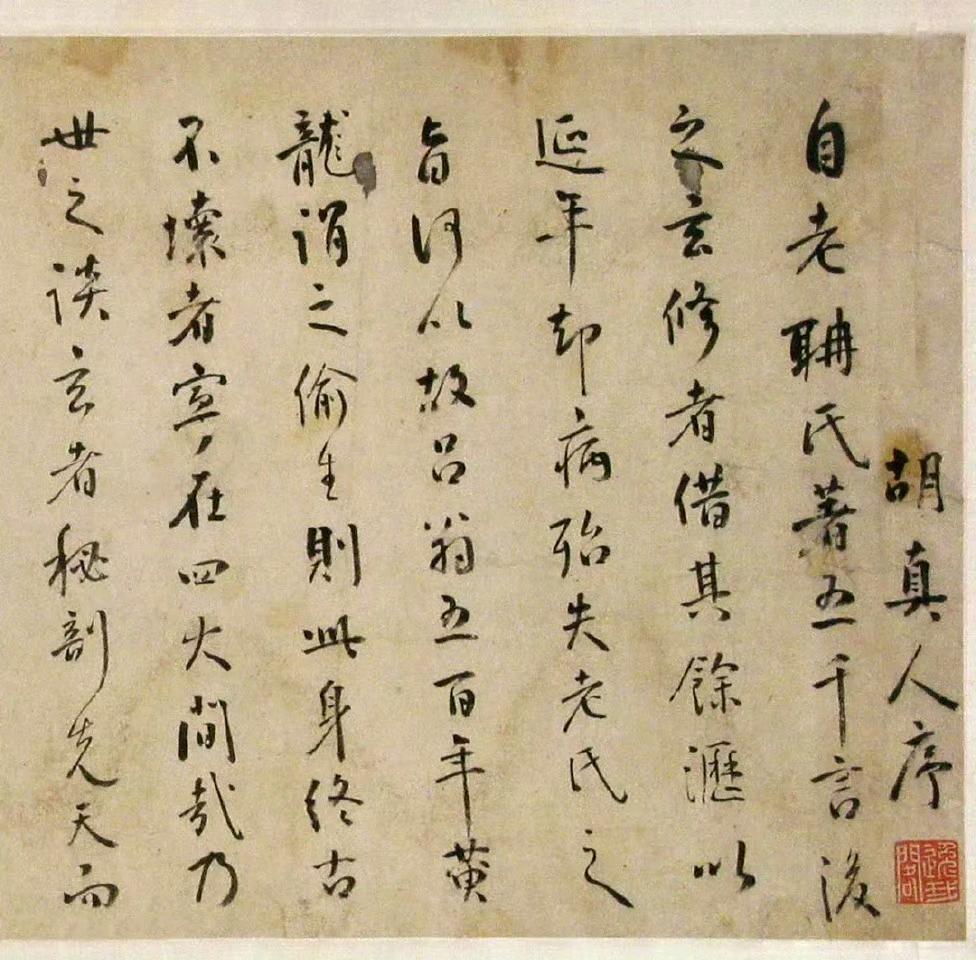 胡真人序
自老聃氏著五千言後
之玄修者借其餘瀝以
延年却病殆失老氏之
旨何以故呂翁五百年黃
龍謂之偷生則此身終古
不壞者寧在四大間哉乃
世之談玄者秘剖先天而